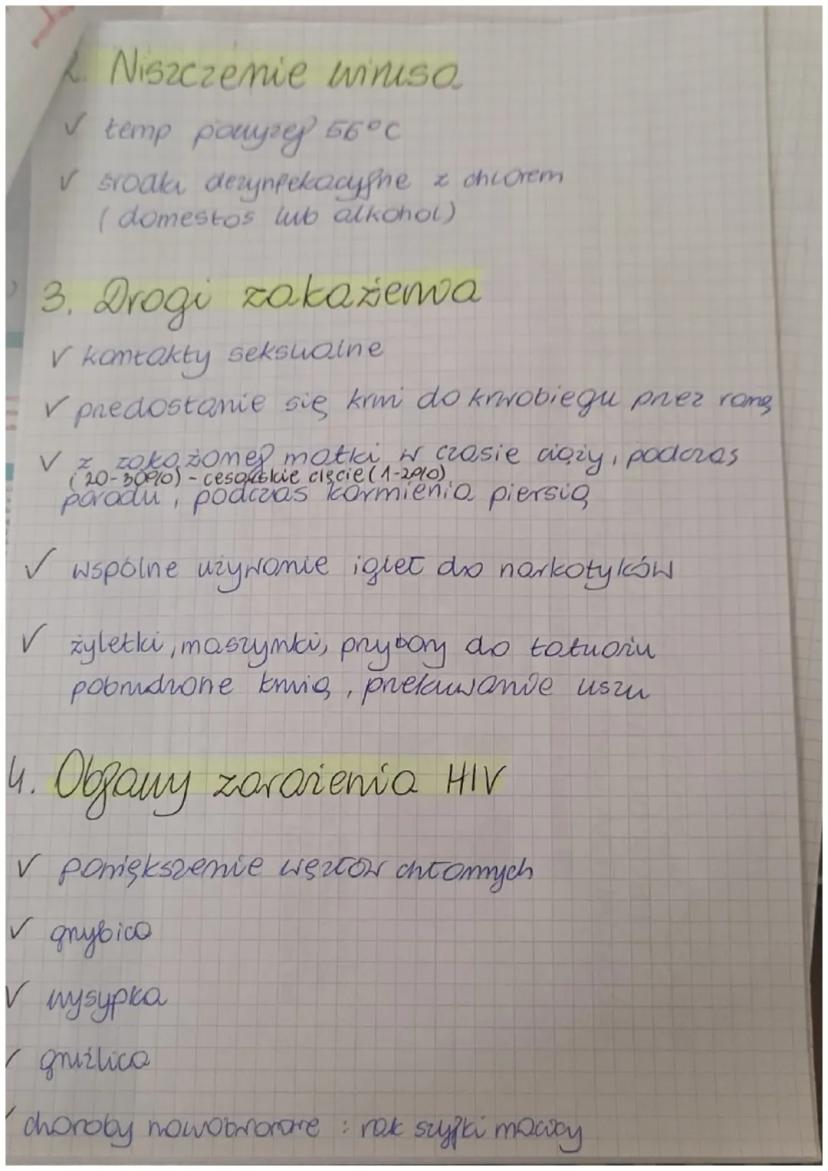 2. Niszczenie wirusa
✓ temp powyżej 56°C
✓ środki dezynfekacyjne z chlorem
(domestos lub alkohol)
3. Drogi zakażenia
✓ kontakty seksualne
✓ przedostanie się krwi do krwobiegu przez ranę
✓ z zakażonej matki w czasie ciąży, podczas
(20-30%) - cesarskie cięcie (1-2%)
porodu, podczas karmienia piersią
✓ wspólne używanie igieł do narkotyków
✓ żyletki, maszynki, przybory do tatuażu
pobrudzone krwią, przekuwanie uszu
4. Objawy zarażenia HIV
✓ powiększenie węzłów chłonnych
✓ grzybica
✓ wysypka
✓ gruźlica
✓ choroby nowotworowe : rak szyjki macicy